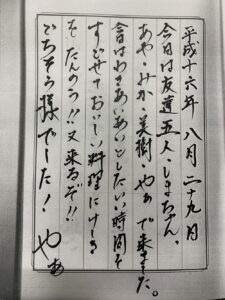 平成十六年 八月 二十九日
今日は友達五人、しまちゃん、
あや・みか・美樹・やぁ で来ました。
今日はわきあいあいとしたいい時間を
すごせて おいしい料理に
をたんのう!! 又来るぞ!!
ごちそう様でした! やぁ